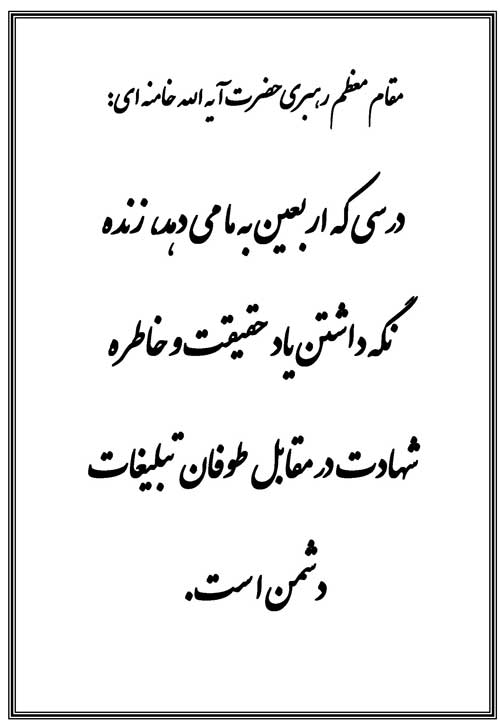 مقام معظم رهبری حضرت آیه الله خامنه ای:
درسی که اربعین به ما می دهد، زنده
نگه داشتن یاد حقیقت و خاطره
شهادت در مقابل طوفان تبلیغات
دشمن است.